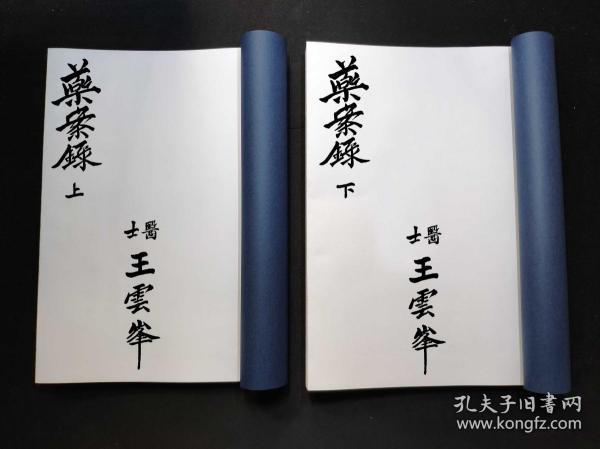 藥案錄
上
醫士
王雲峯
藥案錄
下
醫士
王雲峯
孔夫子旧書网
www.kongfz.com